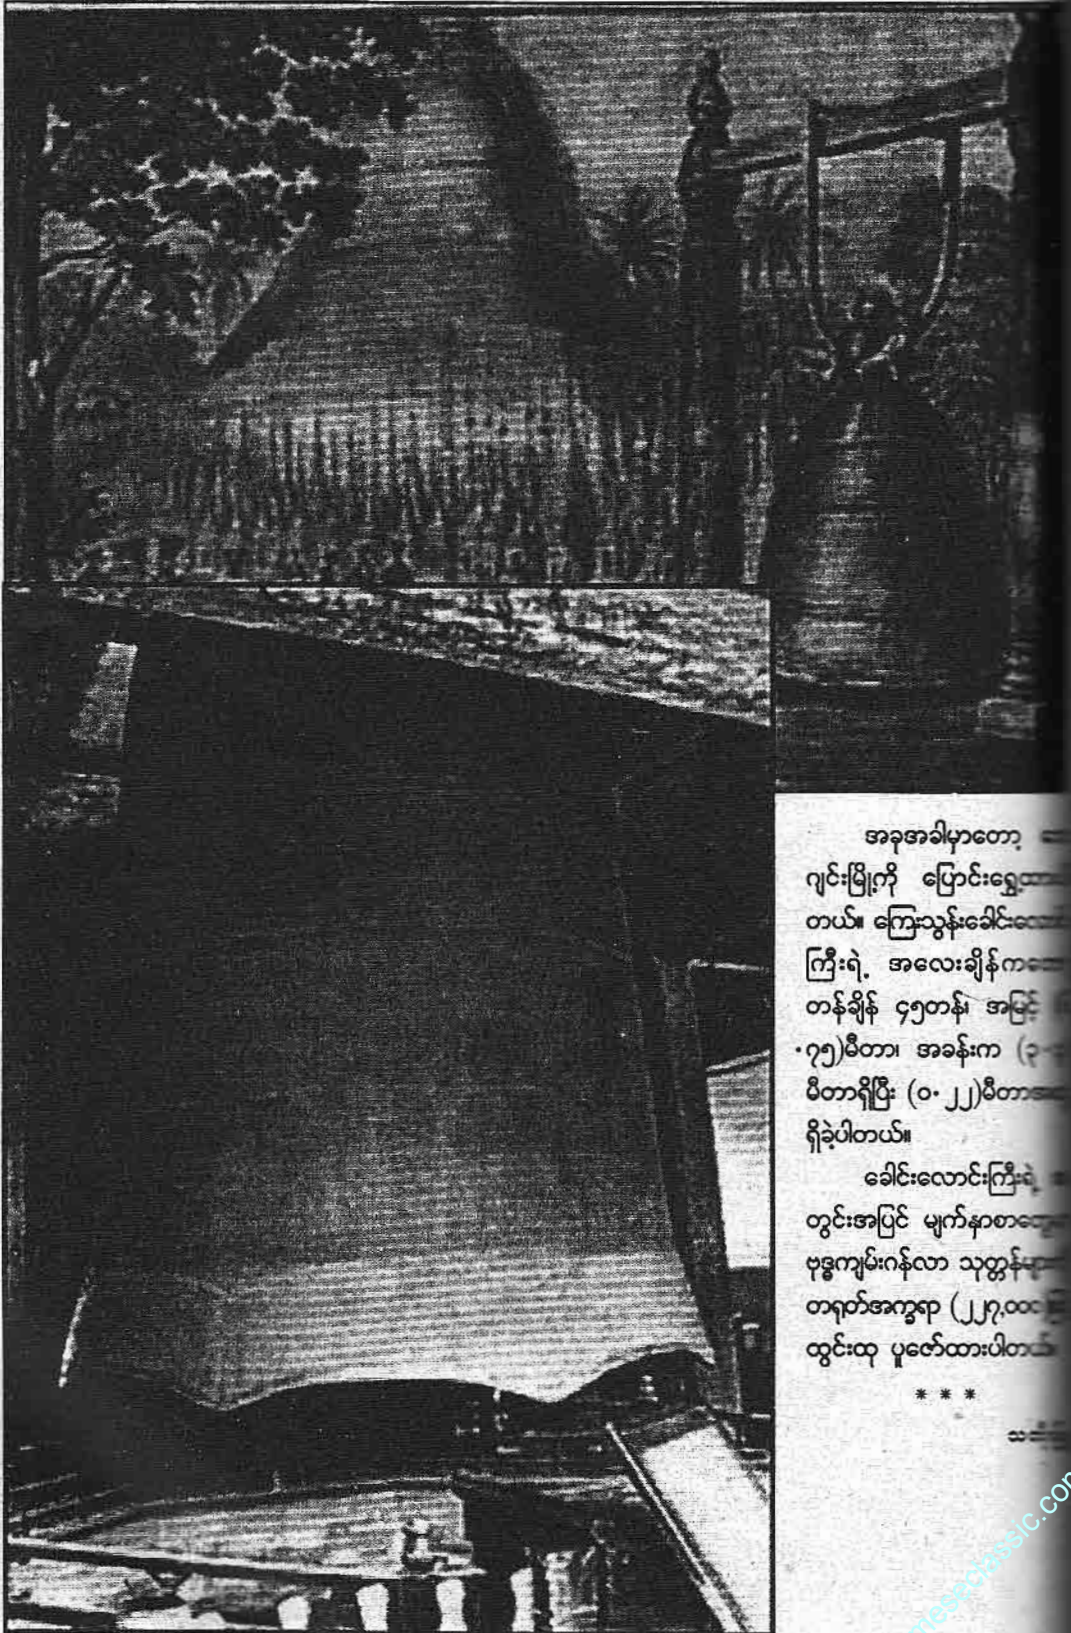 အခုအခါမှာတော့
ဂျင်းမြို့ကို ပြောင်းရွှေ့ထား
တယ်။ ကြေးသွန်းခေါင်းလောင်း
ကြီးရဲ့ အလေးချိန်က
တန်ချိန် ၄၅တန်၊ အမြင့်
·၇၅)မီတာ၊ အခန်းက (၃·
မီတာရှိပြီး (၀·၂၂)မီတာ
ရှိခဲ့ပါတယ်။
ခေါင်းလောင်းကြီးရဲ့
တွင်းအပြင် မျက်နှာစာတွေ
ဗုဒ္ဓကျမ်းဂန်လာ သုတ္တန်များ
တရုတ်အက္ခရာ (၂၂၇,၀၀၀
ထွင်းထု ပူဇော်ထားပါတယ်
* * *
meseclassic.com